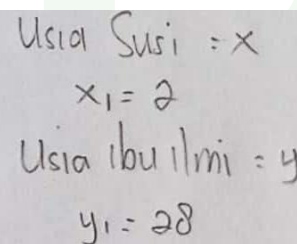 Usia Susi = x
x₁ = 2
Usia ibu ilmi = y
y₁ = 28